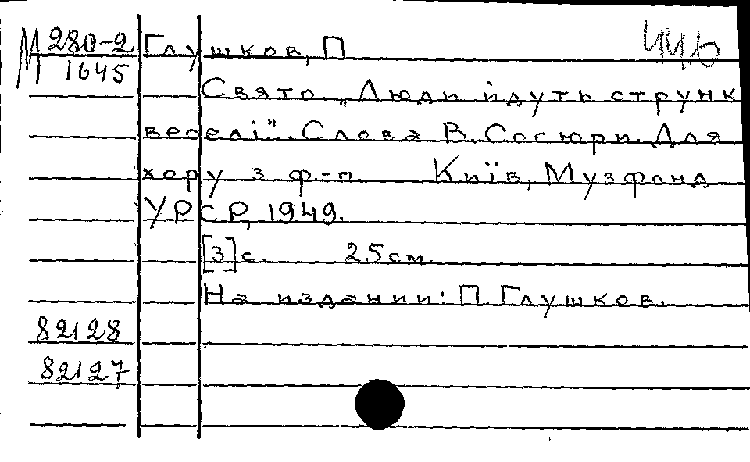 М 280-2 Глушков, П
1645
Свято „Люди йдуть струнк
веселі". Слова В. Сосюри. Для
хору з ф-п. Київ, Музфонд
УРСР, 1949.
[3] с. 25 см.
На издании: П. Глушков.
82128
82127